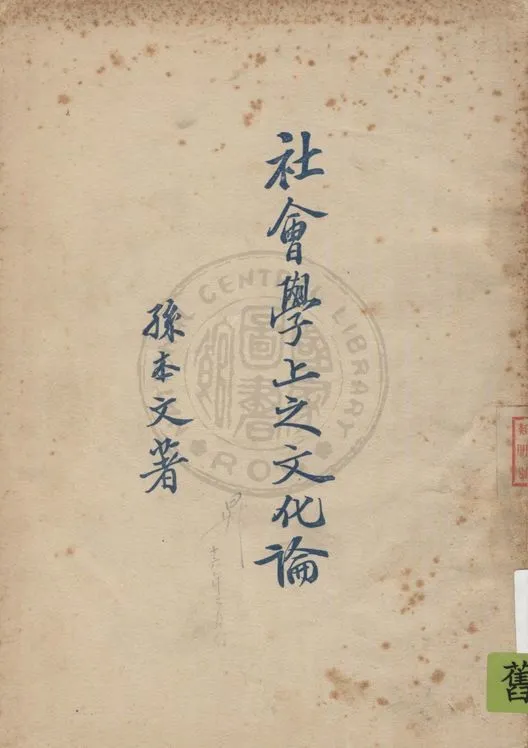 社會學上之文化論
孫本文著
國家圖書館
CENTRAL LIBRARY
ROC
舊